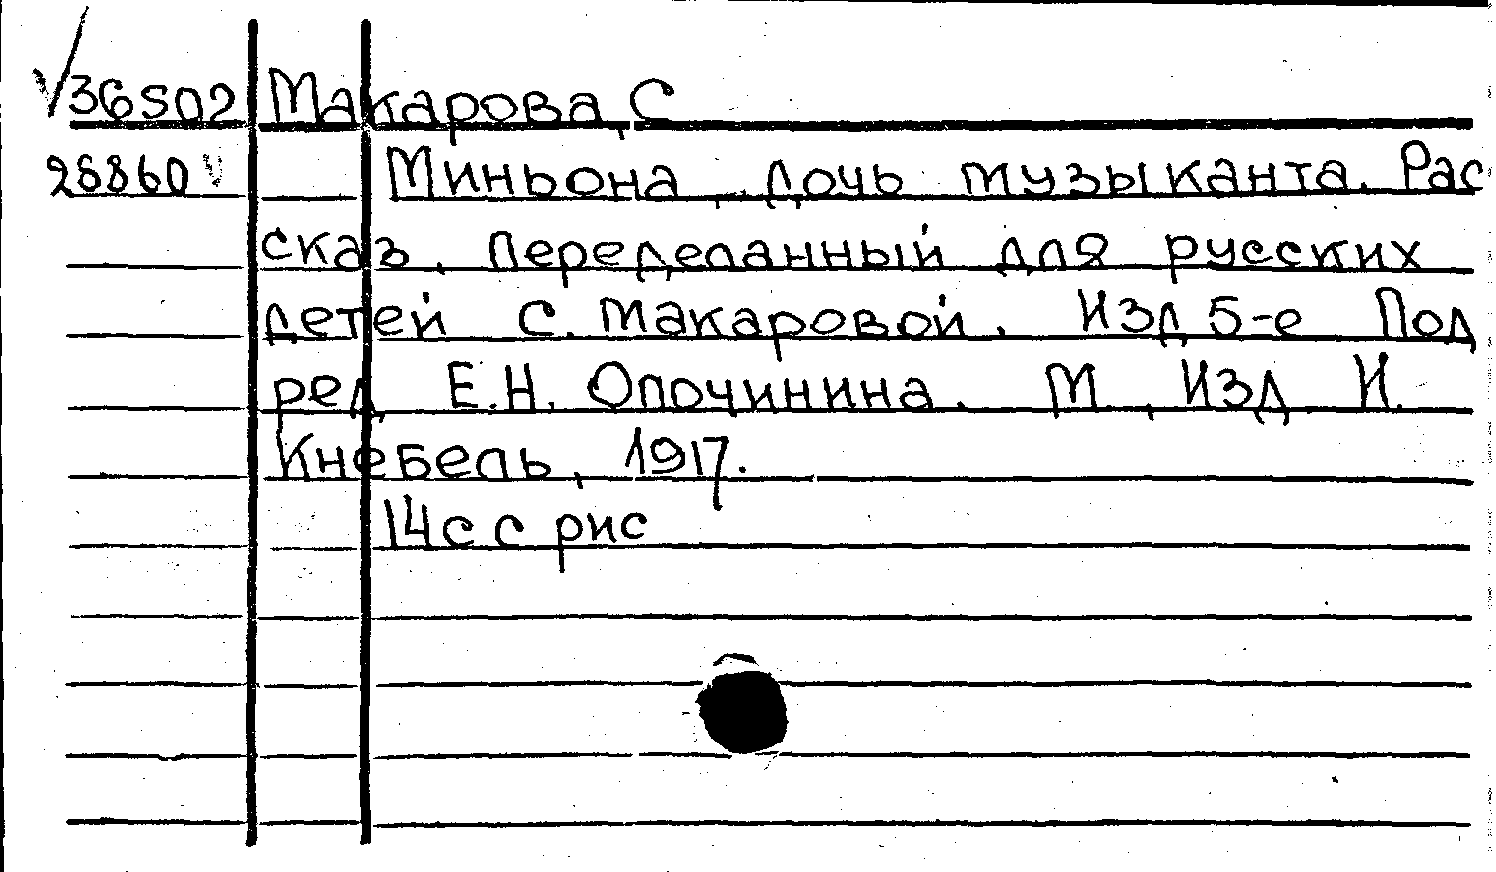 36502 Макарова, С
28860 Миньона, дочь музыканта. Рас
сказ, переделанный для русских
детей С. Макаровой. Изд 5-е Под
ред Е.Н. Опочинина. М, Изд И.
Кнебель, 1917.
14с с рис